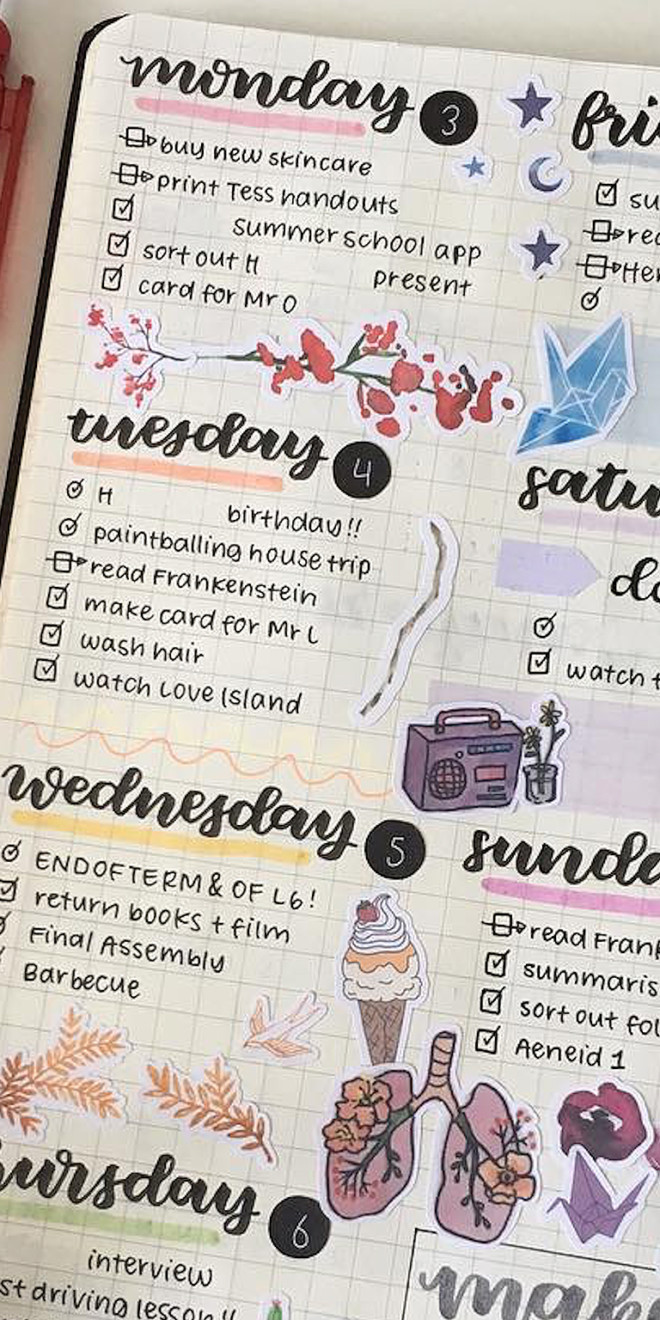 monday 3
buy new skincare
print Tess handouts
summer school app
sort out H present
card for Mr O
tuesday 4
H birthday!!
paintballing house trip
read Frankenstein
make card for Mr L
wash hair
watch Love Island
wednesday 5
END OF TERM & OF L6!
return books + film
Final Assembly
Barbecue
hursday 6
interview
st driving lesson!!
fri
su
rea
Her
satu
da
watch t
sunda
read Frank
summaris
sort out fol
Aeneid 1
make